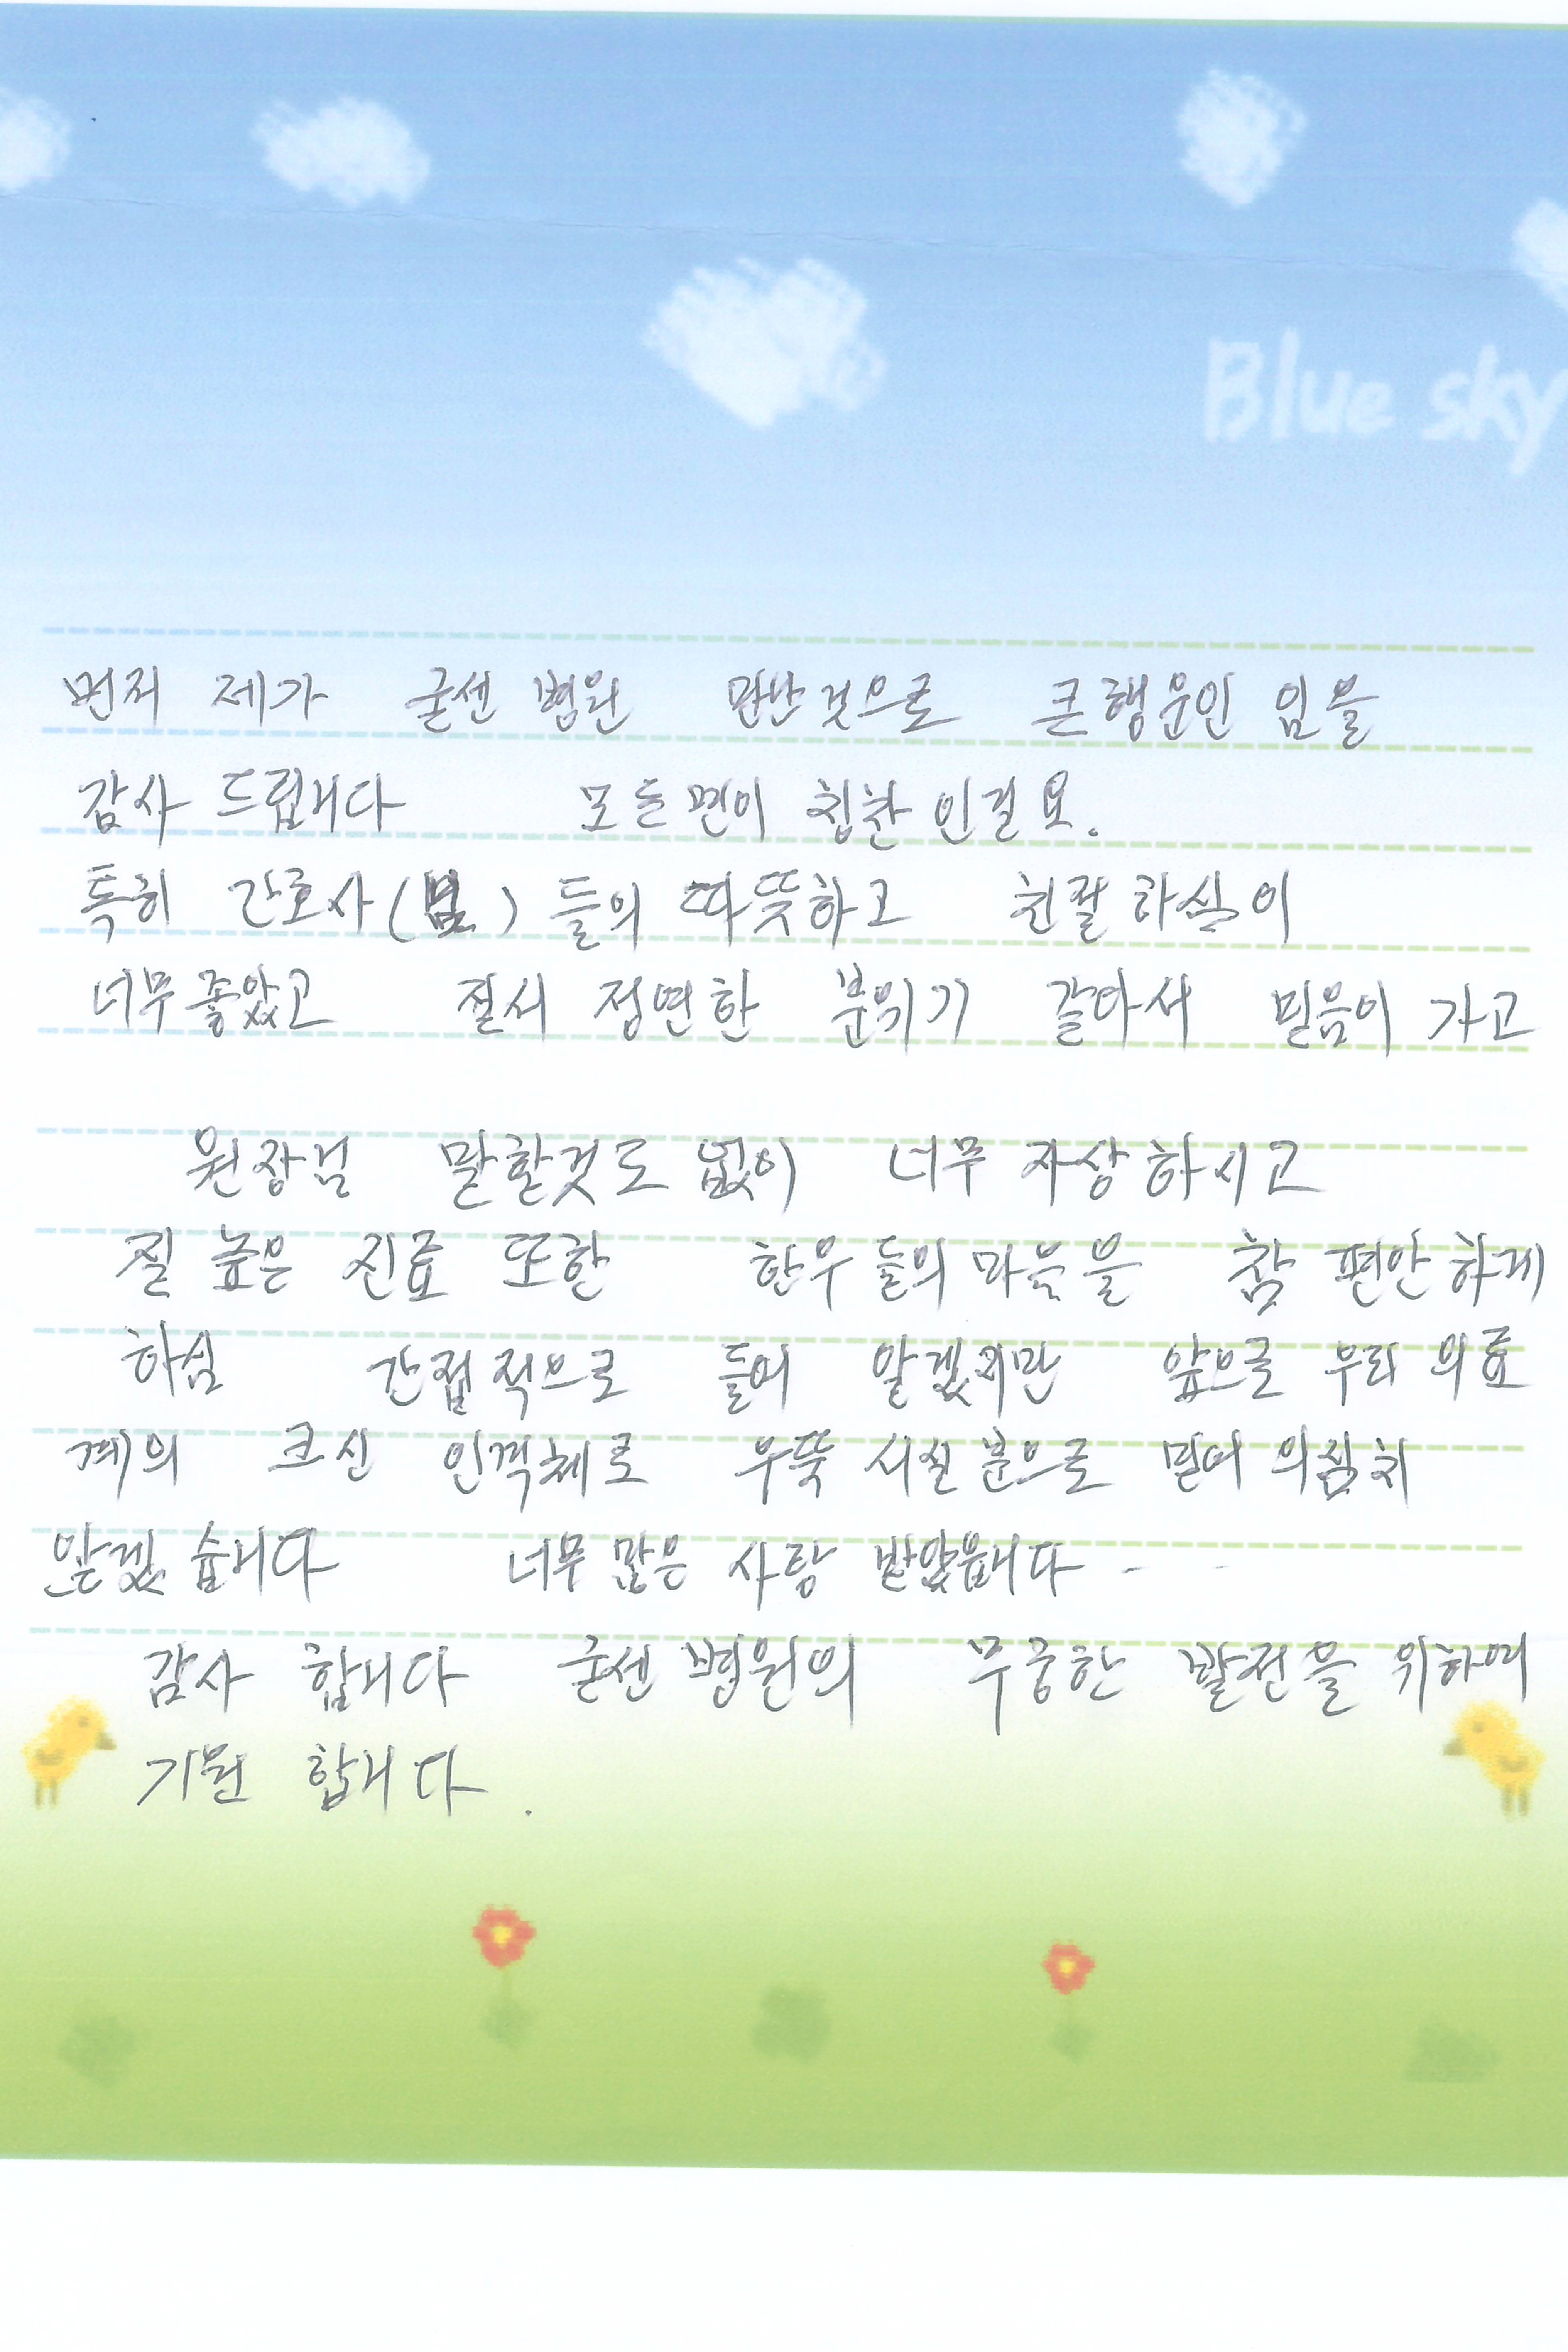 Blue sky
먼저 제가 굳센 병원 만난것으로 큰행운인 임을
감사 드립니다 모든면이 칭찬 인걸요.
특히 간호사(님) 들의 따뜻하고 친절하심이
너무좋았고 질서 정연한 분위기 같아서 믿음이 가고
원장님 말할것도 없이 너무 자상하시고
질 높은 진료 또한 환우들의 마음을 참 편안하게
하심 간접적으로 들어 알겠지만 앞으로 우리 의료
계의 크신 인격체로 우뚝 시실분으로 믿어 의심치
않겠습니다 너무많은 사랑 받았읍니다 - -
감사 합니다 굳센병원의 무궁한 발전을 위하여
기원 합니다.